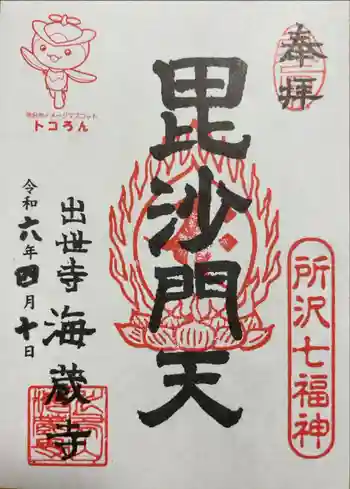 奉拝
所沢七福神
毘沙門天
出世寺 海蔵寺
令和六年四月十日
所沢市イメージマスコット
トコろん